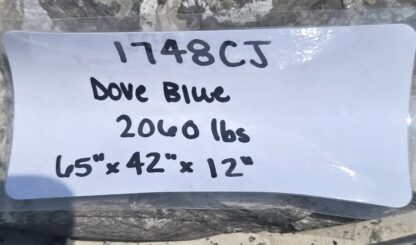 1748CJ
Dove Blue
2060 lbs
65" x 42" x 12"